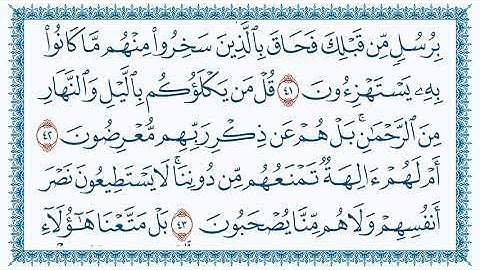 بِرُسُلٍ مِّن قَبْلِكَ فَحَاقَ بِالَّذِينَ سَخِرُوا۟ مِنْهُم مَّا كَانُوا۟
بِهِۦ يَسْتَهْزِءُونَ ٤١ قُلْ مَن يَكْلَؤُكُم بِالَّيْلِ وَالنَّهَارِ
مِنَ الرَّحْمَٰنِ ۚ بَلْ هُمْ عَن ذِكْرِ رَبِّهِم مُّعْرِضُونَ ٤٢
أَمْ لَهُمْ ءَالِهَةٌ تَمْنَعُهُم مِّن دُونِنَا ۚ لَا يَسْتَطِيعُونَ نَصْرَ
أَنفُسِهِمْ وَلَا هُم مِّنَّا يُصْحَبُونَ ٤٣ بَلْ مَتَّعْنَا هَٰٓؤُلَآءِ